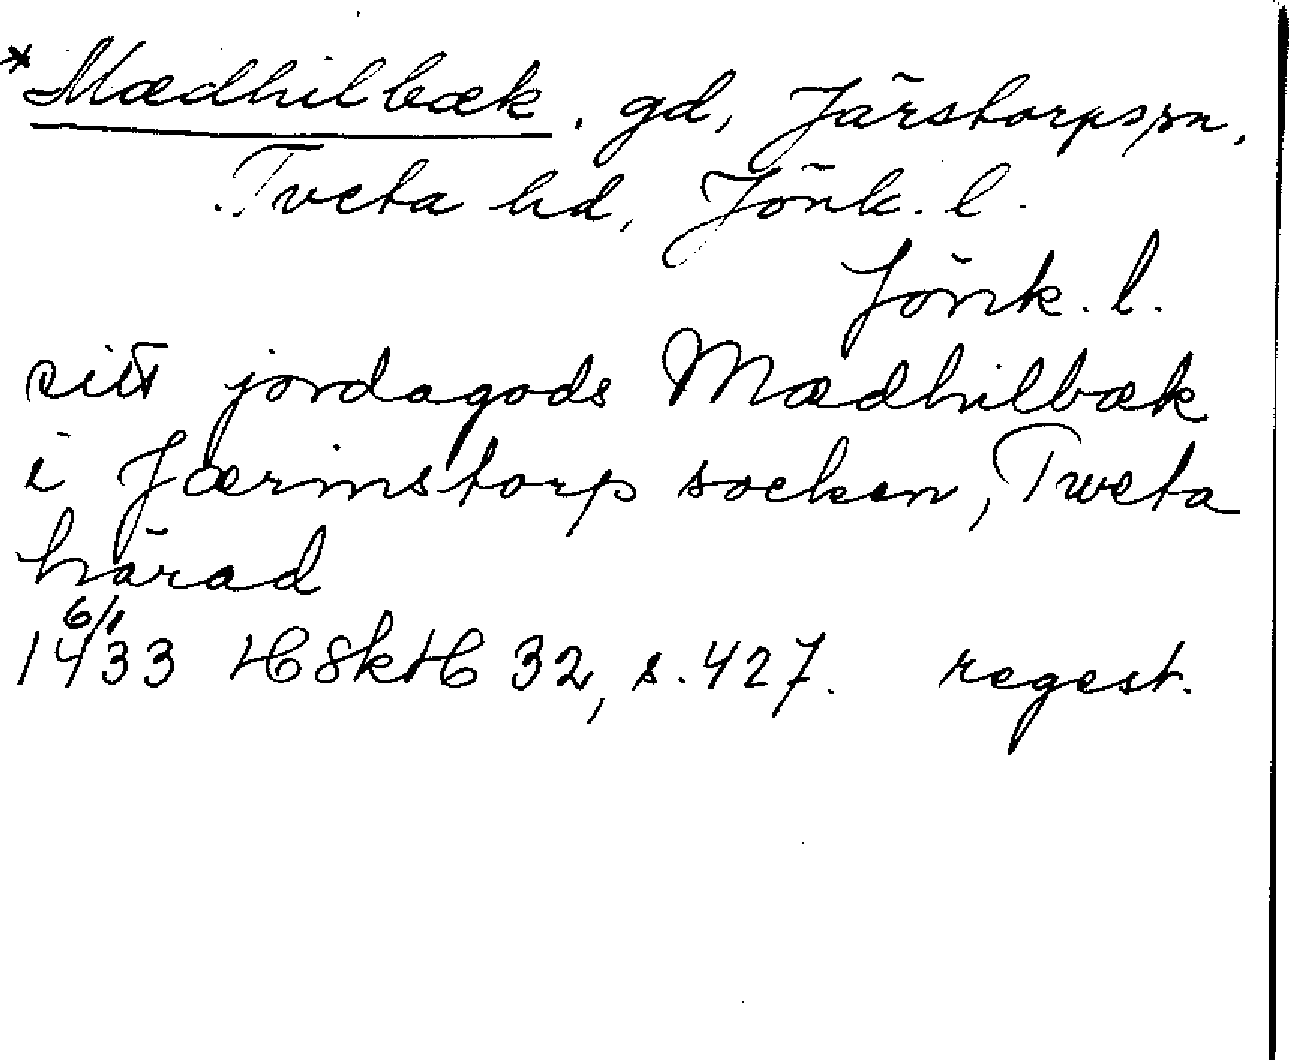 *Mædhilbæk, gd, Järstorps sn,
Tveta hd, Jönk. l.
Jönk. l.
sitt jordagods Mædhilbæk
i Jærinstorp socken, Tweta
härad
1433 6/1 HSkH 32, s. 427. regest.